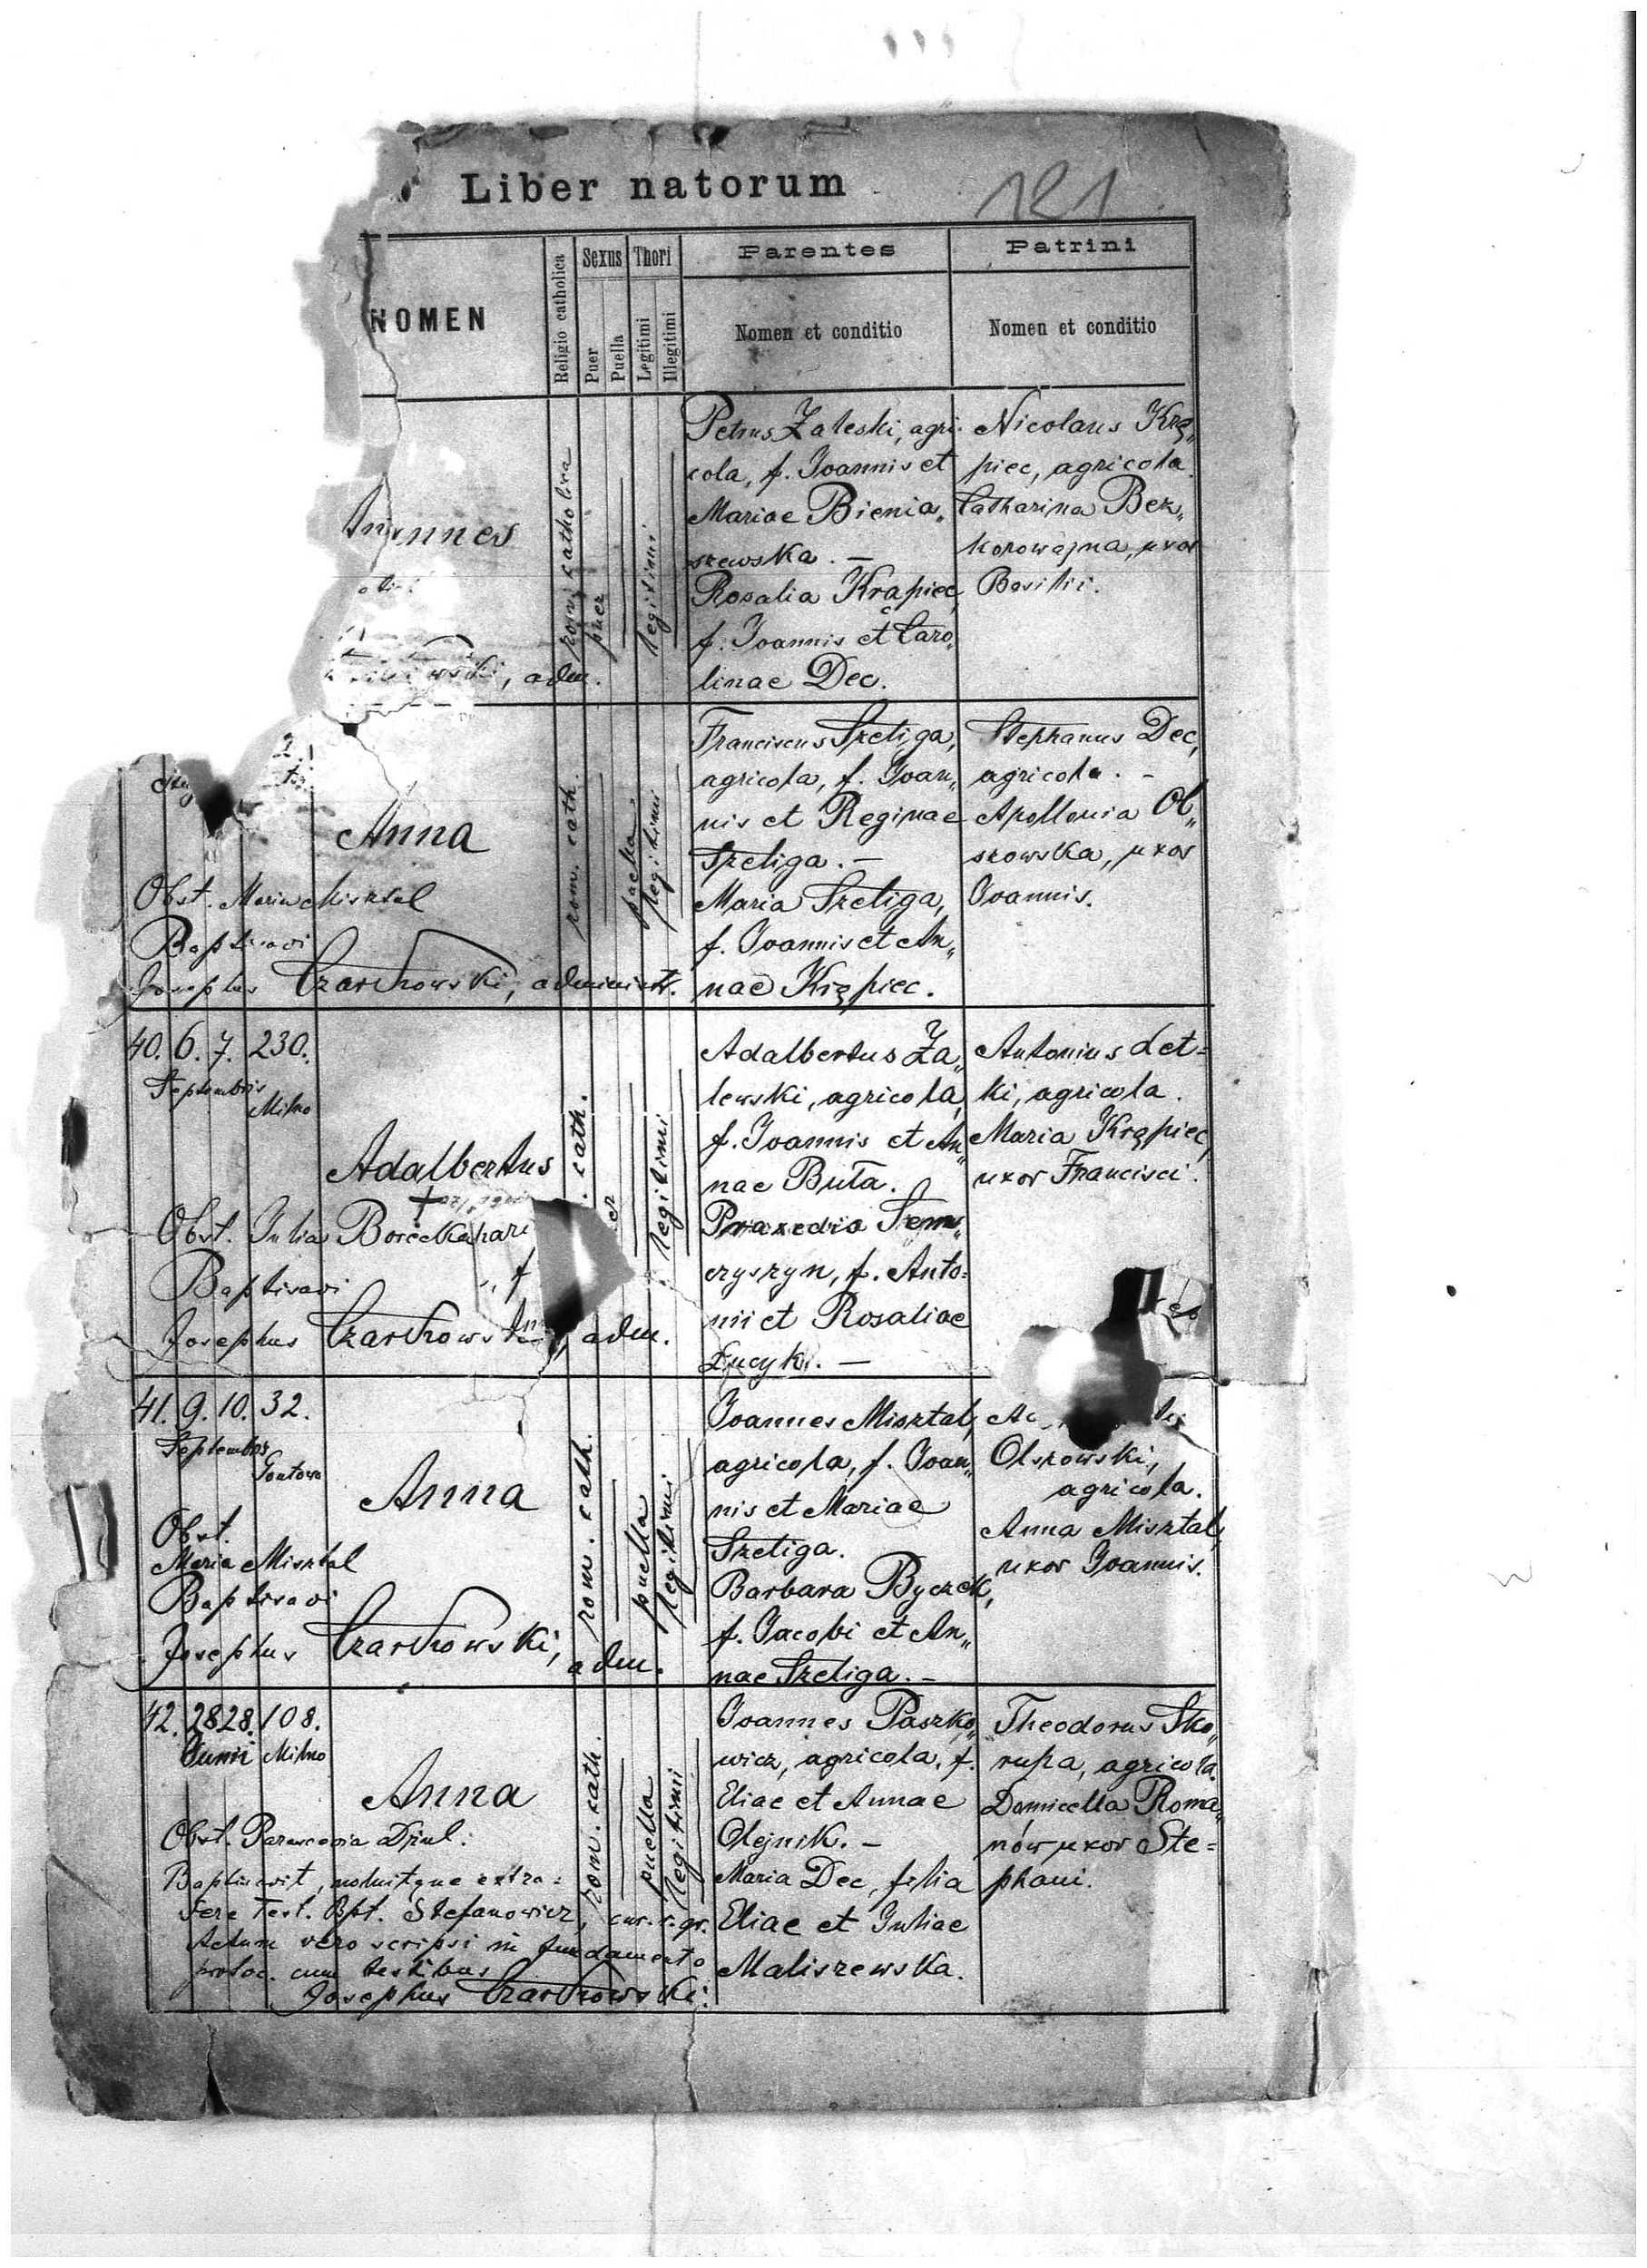 Liber natorum
121
NOMEN
Religio catholica
Sexus
Puer
Puella
Thori
Legitimi
Illegitimi
Parentes
Nomen et conditio
Patrini
Nomen et conditio
rom. catholica
puer
legitimi
adm.
Petrus Zaleski, agri-
cola, f. Joannis et
Mariae Bienia„
szewska. —
Rosalia Krąpiec,
f. Joannis et Caro„
linae Dec.
Nicolaus Krą„
piec, agricola.
Catharina Bez„
korowajna, uxor
Basilii.
Anna
Obst. Maria Misztal
Baptisavi
Josephus Czarkowski, administr.
rom. cath.
puella
legitimi
Franciscus Szeliga,
agricola, f. Joan„
nis et Reginae
Szeliga. —
Maria Szeliga,
f. Joannis et An„
nae Krąpiec.
Stephanus Dec,
agricola. -
Apollonia Ol„
szowska, uxor
Joannis.
40. 6. 7. 230.
Septembris
Milno
Adalbertus
Obst. Julia
Baptisavi
Josephus Czarkowski, adm.
cath.
legitimi
Adalbertus Za„
lewski, agricola,
f. Joannis et An„
nae Buta.
Praxedia Sem„
czyszyn, f. Anto=
nii et Rosaliae
Łucyk. —
Antonius Łet=
ki, agricola.
Maria Krąpiec,
uxor Francisci.
41. 9. 10. 32.
Septembris
Gontowa
Anna
Obst.
Maria Misztal
Baptisavi
Josephus Czarkowski, adm.
rom. cath.
puella
legitimi
Joannes Misztal,
agricola, f. Joan„
nis et Mariae
Szeliga.
Barbara Byczek,
f. Jacobi et An„
nae Szeliga. —
Olszowski,
agricola.
Anna Misztal,
uxor Joannis.
42. 28 28. 108.
Junii Milno
Anna
Obst. Parascevia
Baptisavit, noluitque extra=
dere Test. Bpt. Stefanowicz, cur. r. gr.
Actum vero scripsi in fundamento
protoc. cum testibus
Josephus Czarkowski.
rom. cath.
puella
legitimi
Joannes Paszko„
wicz, agricola, f.
Eliae et Annae
Olejnik. —
Maria Dec, filia
Eliae et Juliae
Maliszewska.
Theodorus Sko„
rupa, agricola.
Domicella Roma„
nów uxor Ste=
phani.